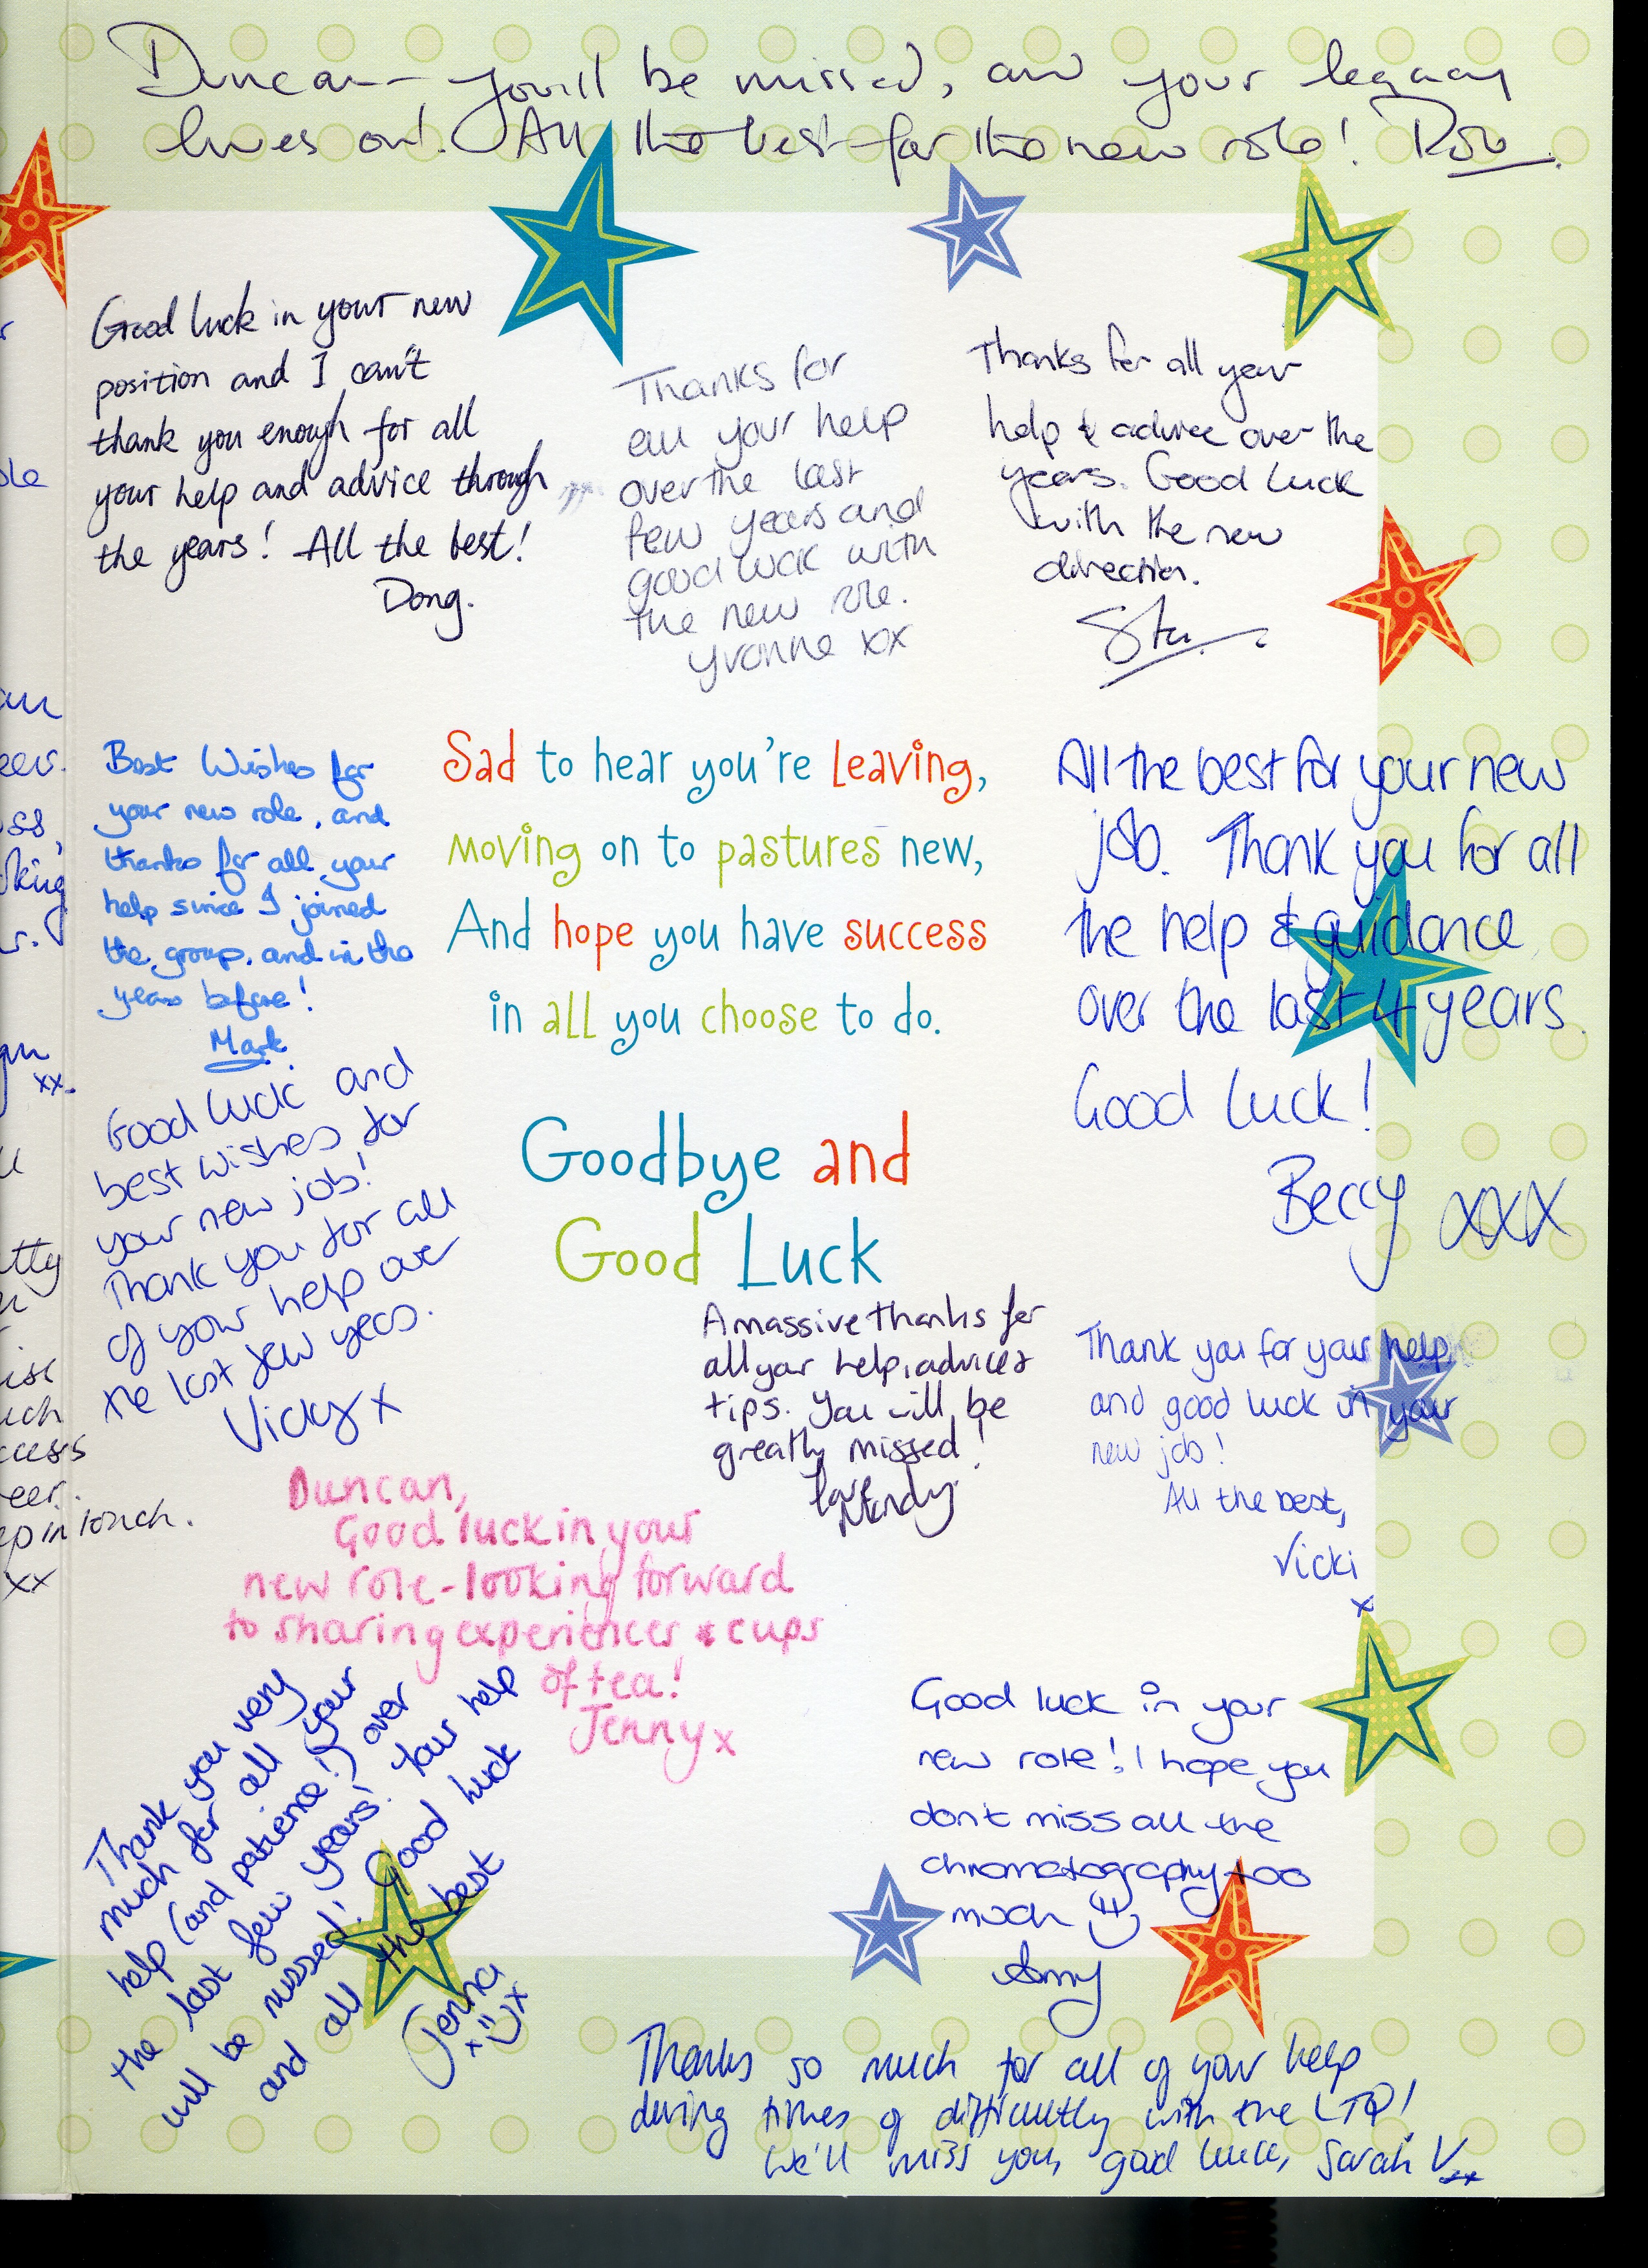 Duncan - you'll be missed, and your legacy
lives on! All the best for the new role! Rob
Good luck in your new
position and I can't
thank you enough for all
your help and advice through
the years! All the best!
Dong.
Thanks for
all your help
over the last
few years and
good luck with
the new role.
Yvonne xx
Thanks for all your
help & advice over the
years. Good luck
with the new
direction.
Stu
Best Wishes for
your new role, and
thanks for all your
help since I joined
the group, and in the
years before!
Mark
Sad to hear you're leaving,
moving on to pastures new,
And hope you have success
in all you choose to do.
Goodbye and
Good Luck
All the best for your new
job. Thank you for all
the help & guidance
over the last 4 years.
Good luck!
Beccy xxx
Good luck and
best wishes for
your new job!
Thank you for all
of your help over
the last few years.
Vicky x
A massive thanks for
all your help, advice &
tips. You will be
greatly missed!
love
Mandy.
Thank you for your help
and good luck in your
new job!
All the best,
Vicki
x
Duncan,
Good luck in your
new role - looking forward
to sharing experiences & cups
of tea!
Jenny x
Thank you very
much for all your
help (and patience!) over
the last few years! Your help
will be missed! Good luck
and all the best
Jenna
x x
Good luck in your
new role! I hope you
don't miss all the
chromatography too
much
Amy
Thanks so much for all of your help
during times of difficultly with the LTQ!
We'll miss you, good luck, Sarah V xx
xx.
in touch.
xx